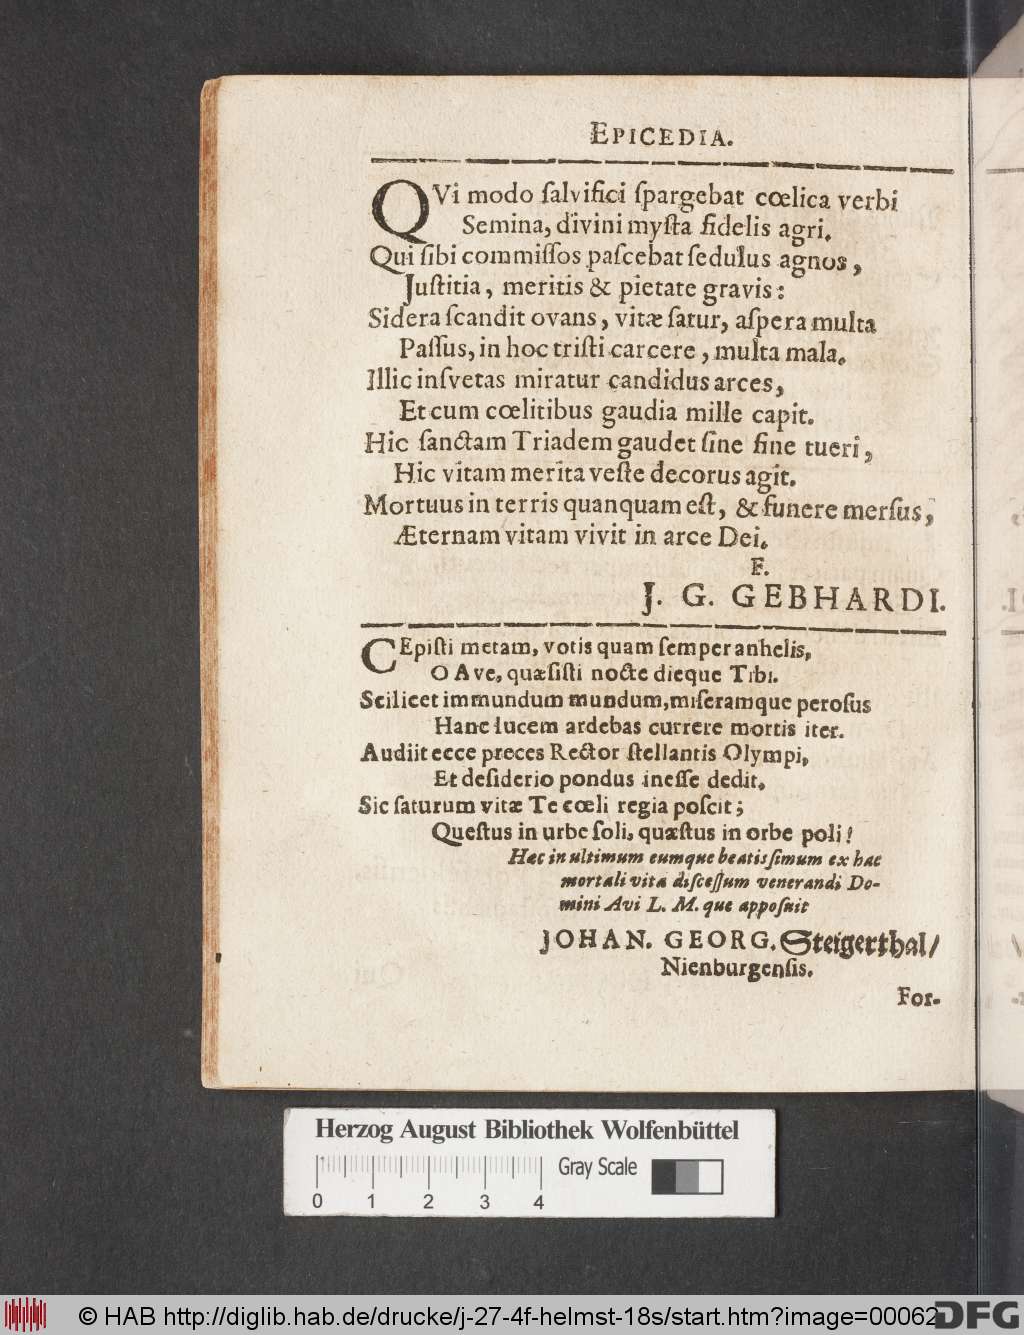 EPICEDIA.
QVi modo ſalvifici ſpargebat cœlica verbi
Semina, divini myſta fidelis agri.
Qui ſibi commiſſos paſcebat ſedulus agnos,
Juſtitia, meritis & pietate gravis:
Sidera ſcandit ovans, vitæ ſatur, aſpera multa
Paſſus, in hoc triſti carcere, multa mala.
Illic inſvetas miratur candidus arces,
Et cum cœlitibus gaudia mille capit.
Hic ſanctam Triadem gaudet ſine fine tueri,
Hic vitam merita veſte decorus agit.
Mortuus in terris quanquam eſt, & funere merſus,
Æternam vitam vivit in arce Dei.
F.
J. G. GEBHARDI.
CEpiſti metam, votis quam ſemper anhelis,
O Ave, quæſiſti nocte dieque Tibi.
Scilicet immundum mundum, miſeramque peroſus
Hanc lucem ardebas currere mortis iter.
Audiit ecce preces Rector ſtellantis Olympi,
Et deſiderio pondus ineſſe dedit.
Sic ſaturum vitæ Te cœli regia poſcit;
Queſtus in urbe ſoli, quæſtus in orbe poli!
Hæc in ultimum eumque beatiſſimum ex hac
mortali vita diſceſſum venerandi Do-
mini Avi L. M. que appoſuit
JOHAN. GEORG. Steigerthal/
Nienburgenſis.
For-
Herzog August Bibliothek Wolfenbüttel
Gray Scale
0 1 2 3 4
© HAB http://diglib.hab.de/drucke/j-27-4f-helmst-18s/start.htm?image=00062
DFG